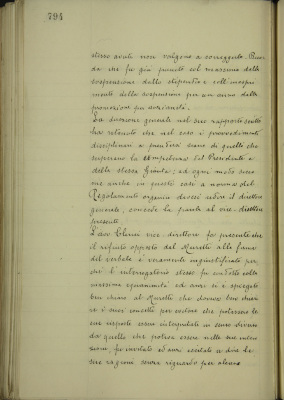 794
stesso avute non valgono a correggerlo. Ricorda
che fu già punito col massimo della
sospensione dallo stipendio e coll'
della sospensione per un anno della
promozione per anzianità.
La direzione generale nel suo rapporto
ha ritenuto che nel caso i provvedimenti
disciplinari a prendersi siano di quelli che
la competenza del Presidente e
della stessa Giunta, ed ogni modo
anche in questi casi a norma del
Regolamento organico devesi udire il direttore
generale, concede la parola al vice-direttore
presente.
Il vice-direttore fa presente che
il rifiuto opposto dal Muretti alla firma
del verbale è veramente ingiustificato
l'interrogatorio stesso fu condotto colla
massima equanimità ed anzi si è spiegato
al Muretti che doveva
i suoi concetti per evitare che potessero le
sue risposte essere interpretate in senso diverso
da quello che poteva essere nelle sue intenzioni,
fu invitato ed anzi eccitato a dire le
sue ragioni senza riguardo per alcuno